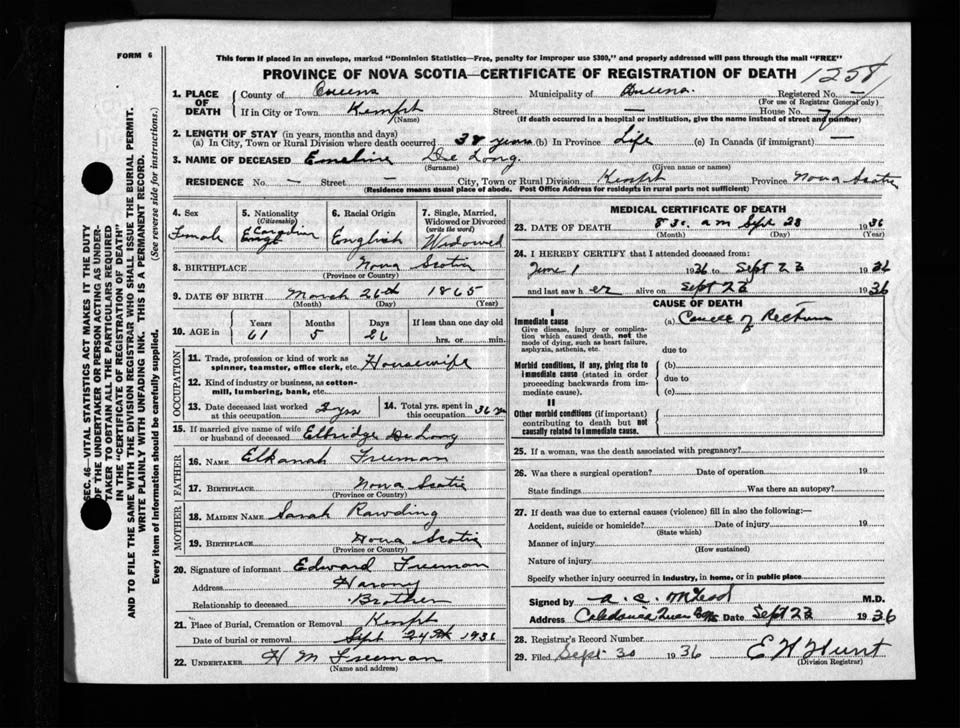 FORM 6
This form if placed in an envelope, marked "Dominion Statistics—Free, penalty for improper use $300," and properly addressed will pass through the mail "FREE"
PROVINCE OF NOVA SCOTIA—CERTIFICATE OF REGISTRATION OF DEATH 1258
1. PLACE OF DEATH
County of Queens Municipality of Queens Registered No. —
(For use of Registrar General only)
If in City or Town Kempt Street — House No.
(Name) (If death occurred in a hospital or institution, give the name instead of street and number)
2. LENGTH OF STAY (in years, months and days)
(a) In City, Town or Rural Division where death occurred 38 years (b) In Province Life (c) In Canada (if immigrant) —
3. NAME OF DECEASED Emeline De Long.
(Surname) (Given name or names)
RESIDENCE No. — Street — City, Town or Rural Division Kempt Province Nova Scotia
(Residence means usual place of abode. Post Office Address for residents in rural parts not sufficient)
4. Sex Female
5. Nationality (Citizenship) Canadian
6. Racial Origin English
7. Single, Married, Widowed or Divorced (write the word) Widowed
8. BIRTHPLACE Nova Scotia
(Province or Country)
9. DATE OF BIRTH March 26th 1865
(Month) (Day) (Year)
10. AGE in Years Months Days If less than one day old
61 5 26 hrs. or min.
OCCUPATION
11. Trade, profession or kind of work as spinner, teamster, office clerk, etc. Housewife
12. Kind of industry or business, as cotton-mill, lumbering, bank, etc.
13. Date deceased last worked at this occupation 3 yrs
14. Total yrs. spent in this occupation 36 yrs
15. If married give name of wife or husband of deceased Elbridge DeLong
FATHER
16. NAME Elkanah Freeman
17. BIRTHPLACE Nova Scotia
(Province or Country)
MOTHER
18. MAIDEN NAME Sarah Rawding
19. BIRTHPLACE Nova Scotia
(Province or Country)
20. Signature of informant Edward Freeman
Address Harony
Relationship to deceased Brother
21. Place of Burial, Cremation or Removal Kempt
Date of burial or removal Sept 24th 1936
22. UNDERTAKER H M Freeman
(Name and address)
MEDICAL CERTIFICATE OF DEATH
23. DATE OF DEATH 8 30 am Sept 23 1936
(Month) (Day) (Year)
24. I HEREBY CERTIFY that I attended deceased from:
June 1 1936 to Sept 23 1936
and last saw her alive on Sept 23 1936
CAUSE OF DEATH
I
Immediate cause (a) Cancer of Rectum
Give disease, injury or complication which caused death, not the mode of dying, such as heart failure, asphyxia, asthenia, etc.
due to
Morbid conditions, if any, giving rise to immediate cause (stated in order proceeding backwards from immediate cause).
(b)
due to
(c)
II
Other morbid conditions (if important) contributing to death but not causally related to immediate cause.
25. If a woman, was the death associated with pregnancy?
26. Was there a surgical operation? Date of operation 19
State findings Was there an autopsy?
27. If death was due to external causes (violence) fill in also the following:—
Accident, suicide or homicide? Date of injury 19
(State which)
Manner of injury
(How sustained)
Nature of injury
Specify whether injury occurred in industry, in home, or in public place
Signed by A. C. McLeod M.D.
Address Caledonia Queens Date Sept 23 1936
28. Registrar's Record Number
29. Filed Sept 30 1936 E W Hunt
(Division Registrar)
SEC. 46—VITAL STATISTICS ACT MAKES IT THE DUTY
OF THE UNDERTAKER OR PERSON ACTING AS UNDER-
TAKER TO OBTAIN ALL THE PARTICULARS REQUIRED
IN THE "CERTIFICATE OF REGISTRATION OF DEATH"
AND TO FILE THE SAME WITH THE DIVISION REGISTRAR WHO SHALL ISSUE THE BURIAL PERMIT.
WRITE PLAINLY WITH UNFADING INK. THIS IS A PERMANENT RECORD.
Every item of information should be carefully supplied. (See reverse side for instructions.)